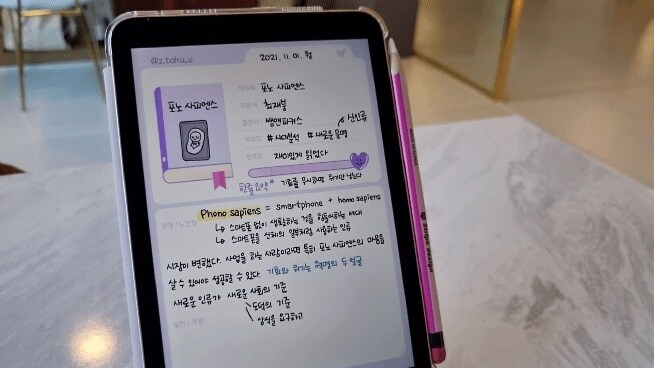 @z.taku_u
2021. 11. 01. 월
포노 사피엔스
포노 사피엔스
최재붕
쌤앤파커스
신인류
# 시대분석 # 새로운 문명
재미있게 읽었다
한줄요약 기회를 무시하면 위기만 남는다
Phono sapiens = smartphone + homo sapiens
↳ 스마트폰 없이 생활하는 것을 힘들어하는 세대
↳ 스마트폰을 신체의 일부처럼 사용하는 인류
시장이 변했다. 사업을 하는 사람이라면 특히 포노 사피엔스의 마음을
살 수 있어야 성공할 수 있다. 기회와 위기는 혁명의 두 얼굴
새로운 인류가 새로운 사회의 기준
도덕의 기준
상식을 요구하고